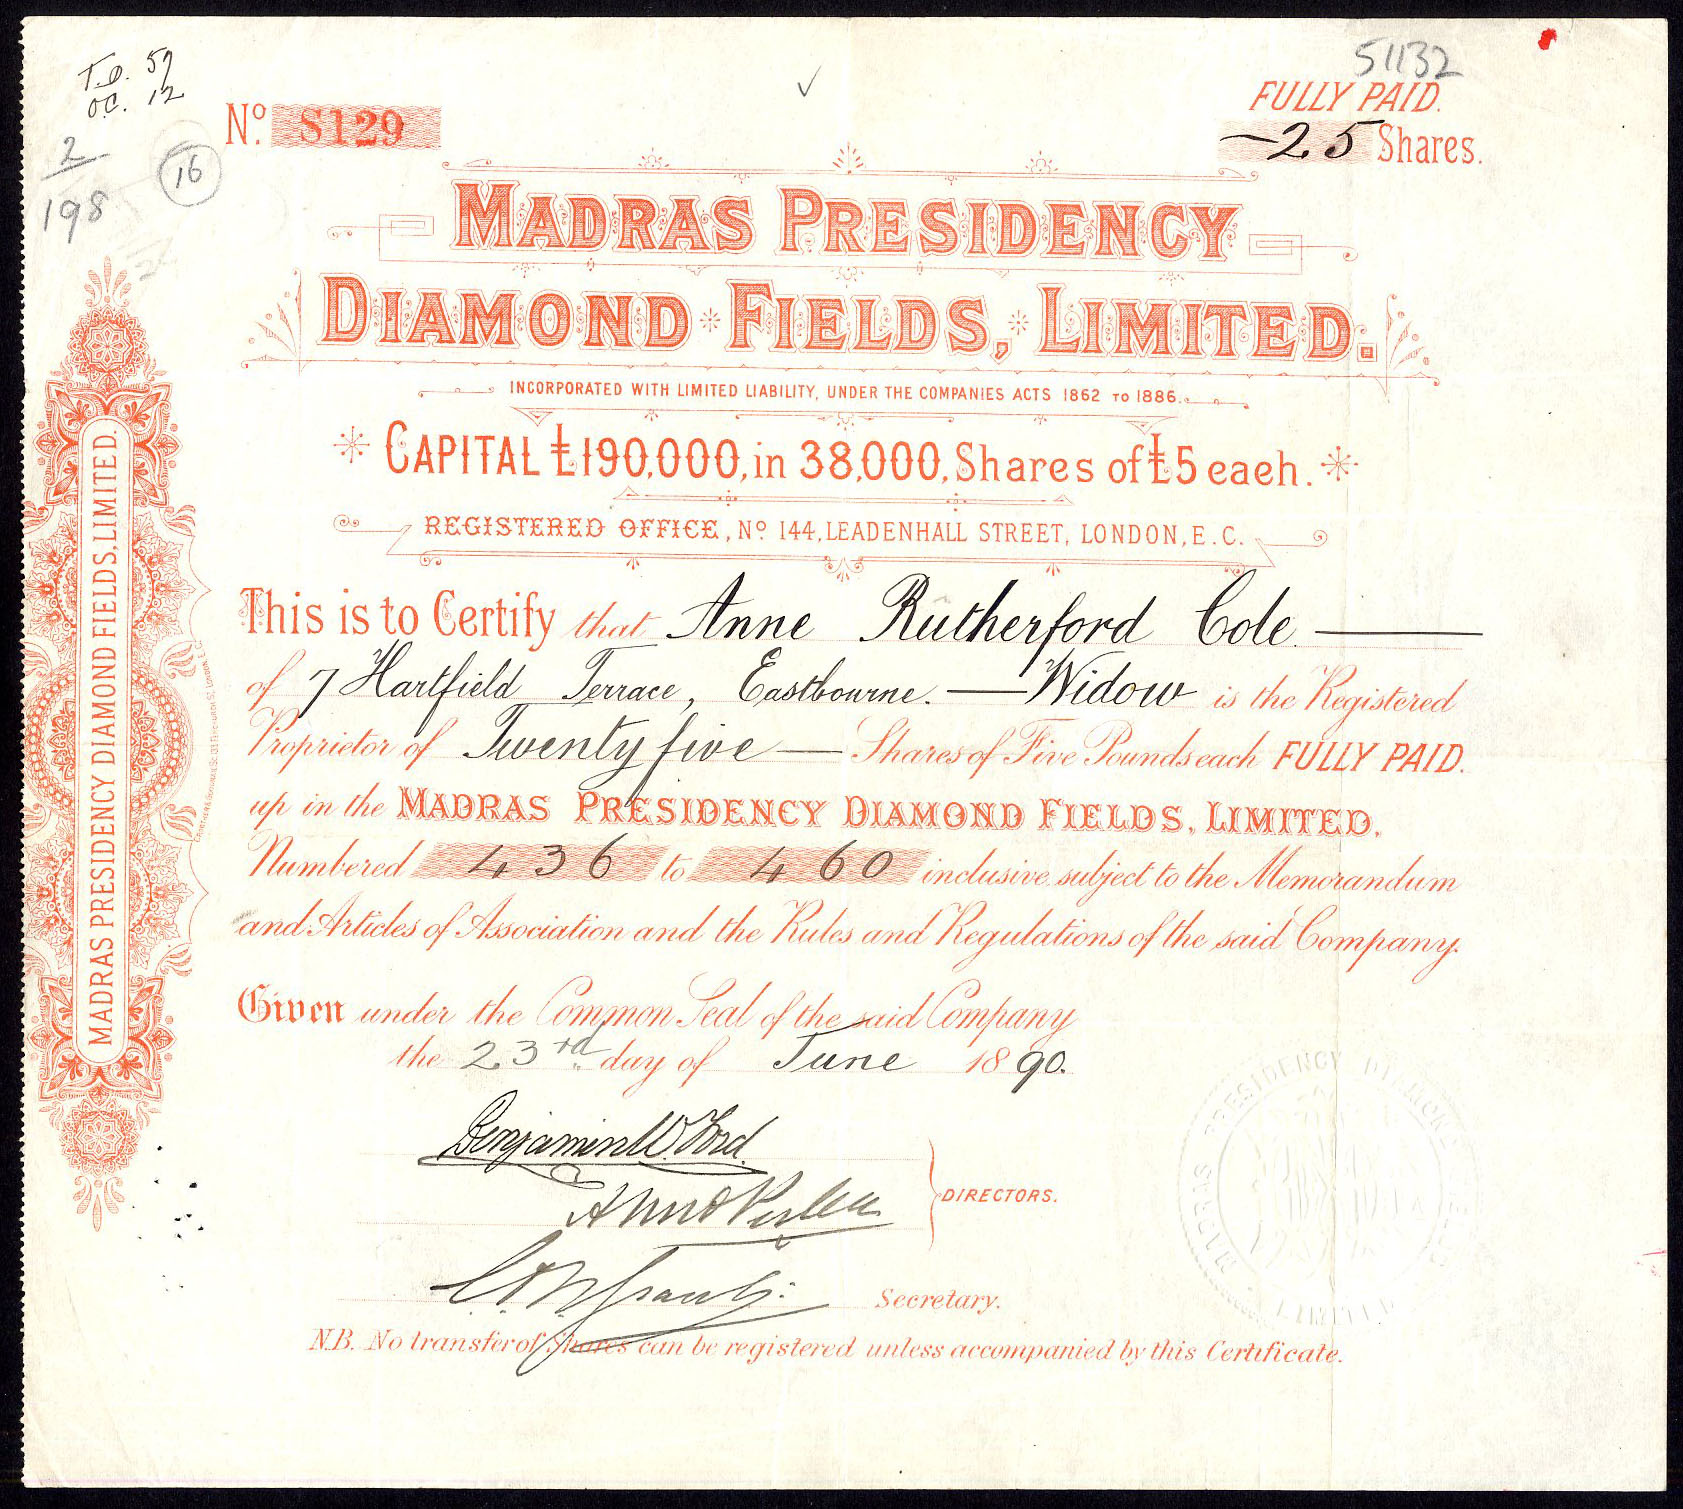 T.O. 57
OC. 12
2
198
16
51132
No. S129
FULLY PAID.
25 Shares.
MADRAS PRESIDENCY
DIAMOND FIELDS, LIMITED.
INCORPORATED WITH LIMITED LIABILITY, UNDER THE COMPANIES ACTS 1862 TO 1886.
CAPITAL £190,000, in 38,000, Shares of £5 each.
REGISTERED OFFICE, No 144, LEADENHALL STREET, LONDON, E.C.
This is to Certify that Anne Rutherford Cole
of 7 Hartfield Terrace, Eastbourne. — Widow is the Registered
Proprietor of Twenty five — Shares of Five Pounds each FULLY PAID.
up in the MADRAS PRESIDENCY DIAMOND FIELDS, LIMITED.
Numbered 436 to 460 inclusive subject to the Memorandum
and Articles of Association and the Rules and Regulations of the said Company.
Given under the Common Seal of the said Company
the 23rd day of June 1890.
Benjamin W. Ford
DIRECTORS.
Secretary.
N.B. No transfer of Shares can be registered unless accompanied by this Certificate.
MADRAS PRESIDENCY DIAMOND FIELDS, LIMITED.
MADRAS PRESIDENCY DIAMOND LIMITED